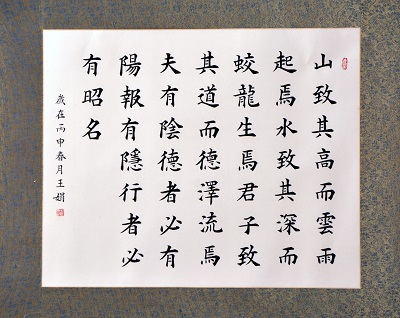 山致其高而雲雨
起焉水致其深而
蛟龍生焉君子致
其道而德澤流焉
夫有陰德者必有
陽報有隱行者必
有昭名
歲在丙申春月王娟